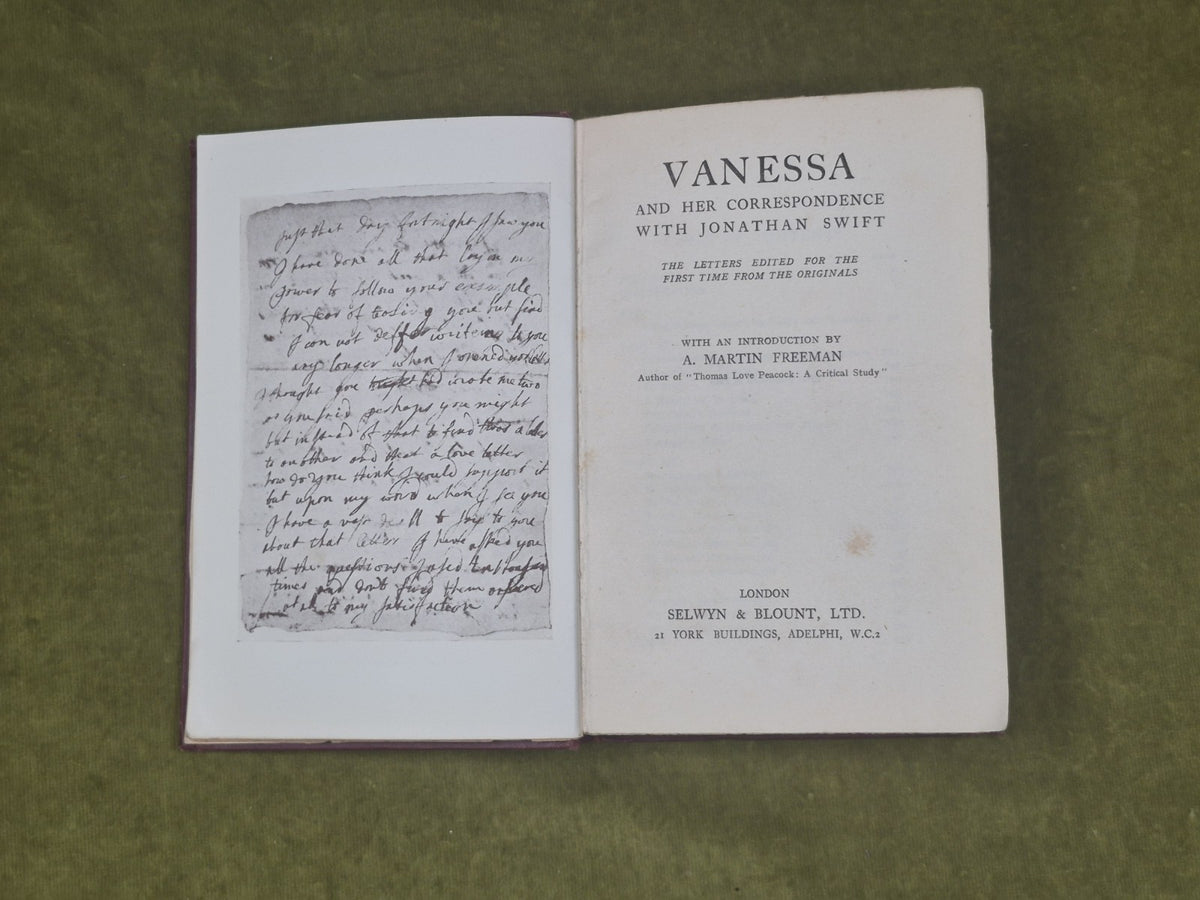 Just that day fortnight I saw you
I have done all that lay in my
power to follow your example
for fear of teasing you but find
I can not deffer writeing to you
any longer when I opened
I thought you had wrote me two
or said perhaps you might
but instead of that to find a letter
to another and that a love letter
how do you think I could support it
but upon my word when I see you
I have a vast to say to you
about that letter I have asked you
all the questions I used
times and don't find them
at all to my satisfaction
VANESSA
AND HER CORRESPONDENCE
WITH JONATHAN SWIFT
THE LETTERS EDITED FOR THE
FIRST TIME FROM THE ORIGINALS
WITH AN INTRODUCTION BY
A. MARTIN FREEMAN
Author of "Thomas Love Peacock: A Critical Study"
LONDON
SELWYN & BLOUNT, LTD.
21 YORK BUILDINGS, ADELPHI, W.C.2